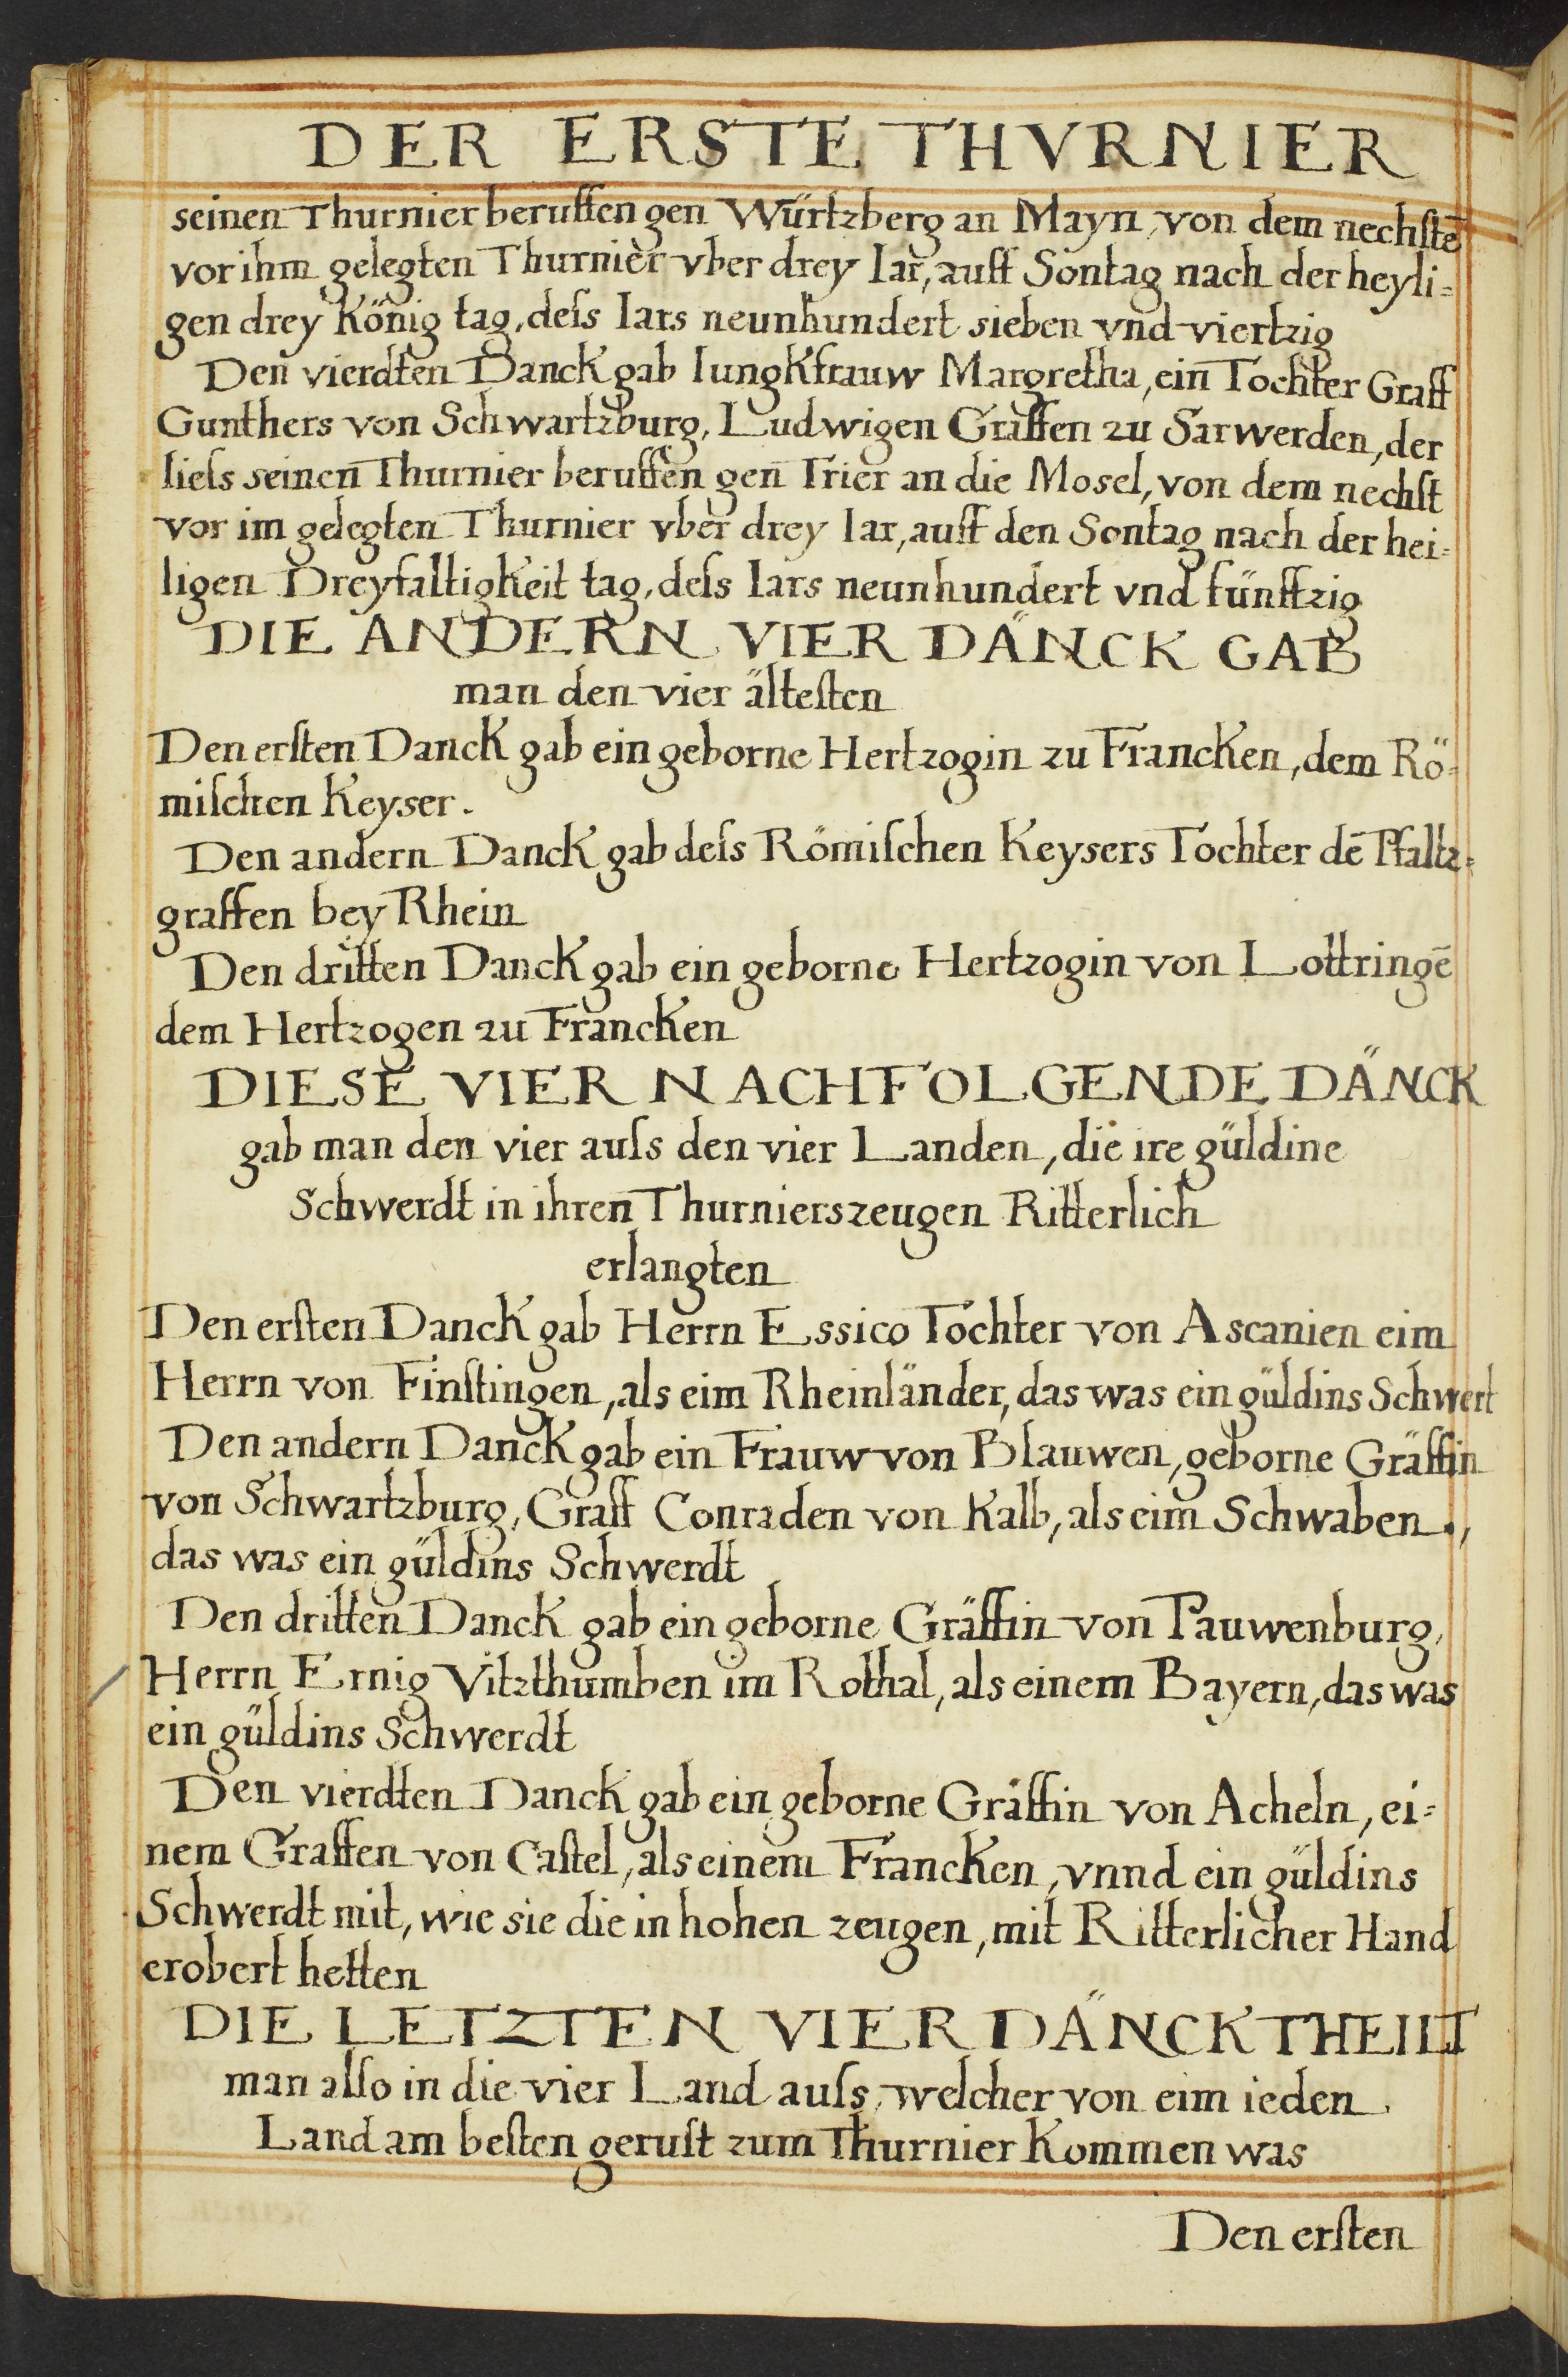 DER ERSTE THVRNIER
seinen Thurnier beruffen gen Würtzberg an Mayn, von dem nechstē
vor ihm gelegten Thurnier vber drey Iar, auff Sontag nach der heyli=
gen drey König tag, deſs Iars neunhundert sieben vnd viertzig
Den vierdten Danck gab Iungkfrauw Margretha, ein Tochter Graff
Gunthers von Schwartzburg, Ludwigen Graffen zu Sarwerden, der
lieſs seinen Thurnier beruffen gen Trier an die Mosel, von dem nechſt
vor im gelegten Thurnier vber drey Iar, auff den Sontag nach der hei=
ligen Dreyfaltigkeit tag, deſs Iars neunhundert vnd fünfftzig
DIE ANDERN VIER DÄNCK GAB
man den vier älteſten
Den erſten Danck gab ein geborne Hertzogin zu Francken, dem Rö=
miſchen Keyser.
Den andern Danck gab deſs Römiſchen Keysers Tochter dē Pfaltz=
graffen bey Rhein
Den dritten Danck gab ein geborne Hertzogin von Lottringē
dem Hertzogen zu Francken
DIESE VIER NACHFOLGENDE DÄNCK
gab man den vier auſs den vier Landen, die ire güldine
Schwerdt in ihren Thurnierszeugen Ritterlich
erlangten
Den erſten Danck gab Herrn Essico Tochter von Ascanien eim
Herrn von Finſtingen, als eim Rheinländer, das was ein güldins Schwert
Den andern Danck gab ein Frauw von Blauwen, geborne Gräffin
von Schwartzburg, Graff Conraden von Kalb, als eim Schwaben.,
das was ein güldins Schwerdt
Den dritten Danck gab ein geborne Gräffin von Pauwenburg,
Herrn Ernig Vitzthumben im Rothal, als einem Bayern, das was
ein güldins Schwerdt
Den vierdten Danck gab ein geborne Gräffin von Acheln, ei=
nem Graffen von Caſtel, als einem Francken, vnnd ein güldins
Schwerdt mit, wie sie die in hohen zeugen, mit Ritterlicher Hand
erobert hetten
DIE LETZTEN VIER DÄNCK THEILT
man alſo in die vier Land auſs, welcher von eim ieden
Land am beſten geruſt zum Thurnier kommen was
Den erſten